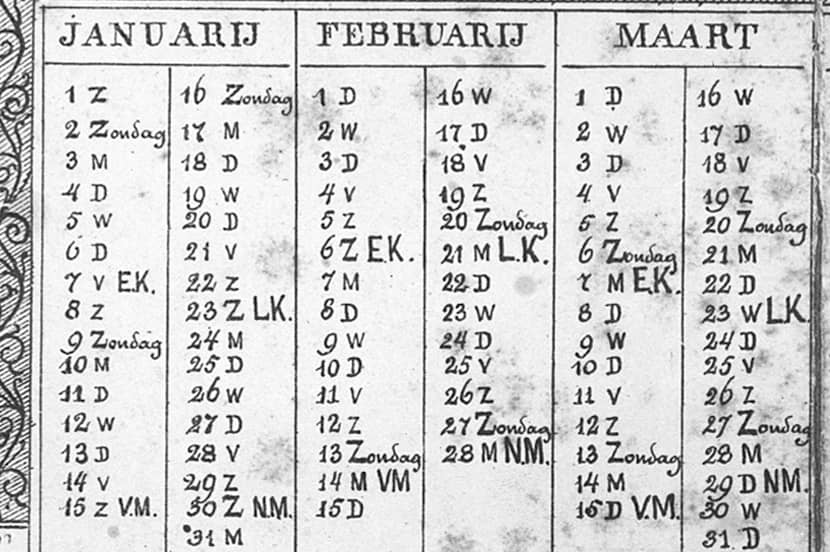 JANUARIJ
1 Z
2 Zondag
3 M
4 D
5 W
6 D
7 V E.K.
8 Z
9 Zondag
10 M
11 D
12 W
13 D
14 V
15 Z V.M.
16 Zondag
17 M
18 D
19 W
20 D
21 V
22 Z
23 Z L.K.
24 M
25 D
26 W
27 D
28 V
29 Z
30 Z N.M.
31 M
FEBRUARIJ
1 D
2 W
3 D
4 V
5 Z
6 Z E.K.
7 M
8 D
9 W
10 D
11 V
12 Z
13 Zondag
14 M VM
15 D
16 W
17 D
18 V
19 Z
20 Zondag
21 M L.K.
22 D
23 W
24 D
25 V
26 Z
27 Zondag
28 M N.M.
MAART
1 D
2 W
3 D
4 V
5 Z
6 Zondag
7 M E.K.
8 D
9 W
10 D
11 V
12 Z
13 Zondag
14 M
15 D V.M.
16 W
17 D
18 V
19 Z
20 Zondag
21 M
22 D
23 W L.K.
24 D
25 V
26 Z
27 Zondag
28 M
29 D N.M.
30 W
31 D